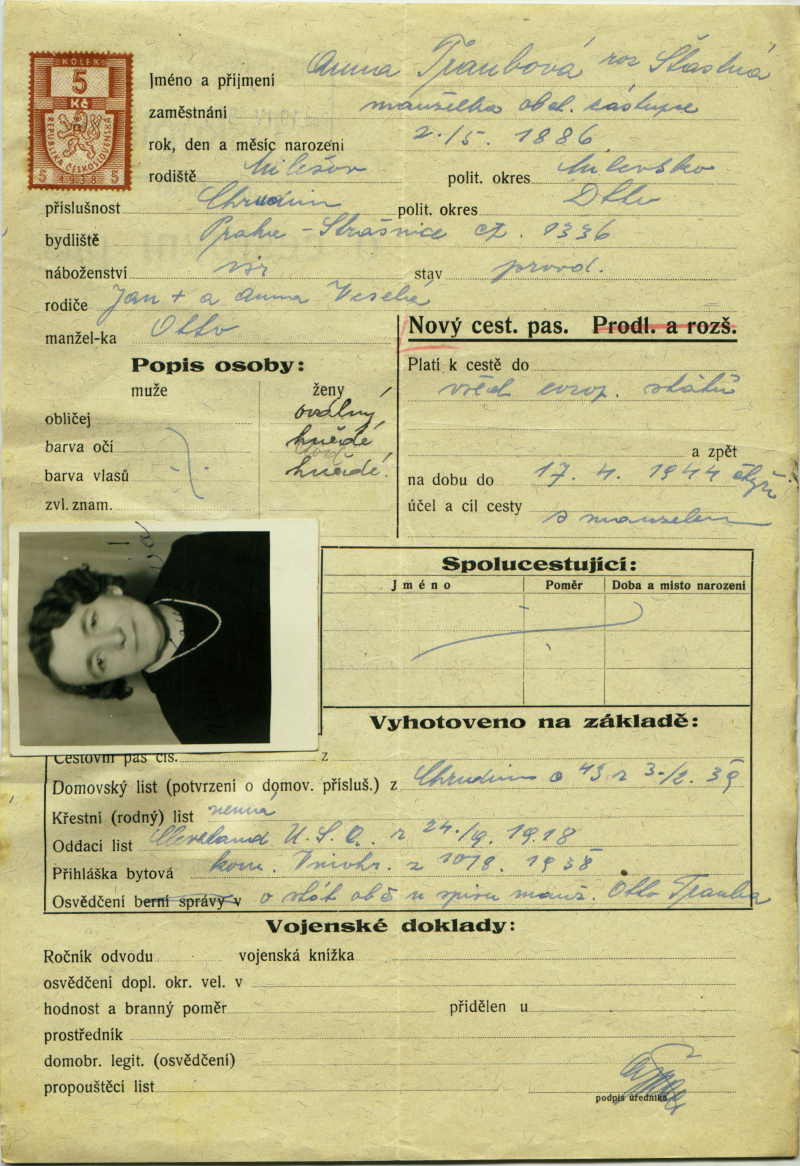 KOLEK
5
Kč
REPUBLIKA ČESKOSLOVENSKÁ
5 1938 5
Jméno a přijmení Anna Traubová roz Šťastná
zaměstnání manželka obch. zástupce
rok, den a měsíc narození 2./5. 1886.
rodiště Milešov polit. okres Milevsko
příslušnost Chrudim polit. okres Dtto
bydliště Praha - Strašnice čp. 1336
náboženství stav provd.
rodiče Jan + a Anna Veselá
manžel-ka Otto
Nový cest. pas. Prodl. a rozš.
Popis osoby:
muže ženy
obličej oválný
barva očí hnědé
barva vlasů hnědé
zvl. znam.
Platí k cestě do
všech evrop. států
a zpět
na dobu do 17. 4. 1944 čtyř
účel a cíl cesty s manželem
Spolucestující:
Jméno Poměr Doba a místo narození
Vyhotoveno na základě:
Cestovní pas čís. z
Domovský list (potvrzení o domov. přísluš.) z Chrudim č 43 z 3./2. 39
Křestní (rodný) list nemá
Oddací list Cleveland U. S. A. z 24./9. 1918
Přihláška bytová kom. Vinohr. z 10/8. 1938
Osvědčení berní správy v o stát obč u spisu manž. Otto Trauba
Vojenské doklady:
Ročník odvodu vojenská knížka
osvědčení dopl. okr. vel. v
hodnost a branný poměr přidělen u
prostředník
domobr. legit. (osvědčení)
propouštěcí list
podpis úředníka